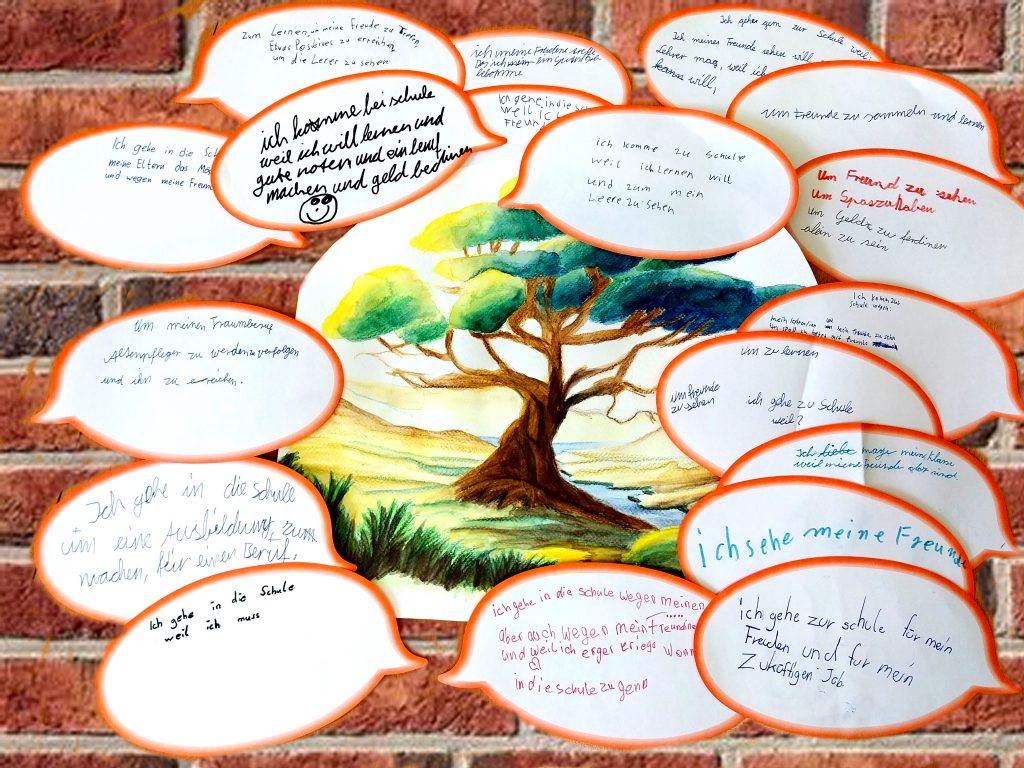 Zum Lernen, um meine Freude zu Trefen,
Etwas Positives zu erreichen
um die Lerer zu sehen
ich meine Freudene treffe
Das ich ein
bekomme
Ich gehe gern zur Schule weil,
Ich meine Freunde sehen will
Lehrer mag, weil ich
kann will,
Ich gehe in die Sch
weil ich
Freun
um Freunde zu sammeln und lernen
ich komme bei schule
weil ich will lernen und
gute noten und ein beruf
machen und geld bedinen
Ich gehe in die Sch
meine Eltern das Mö
und wegen meine Freun
ich komme zu schule
weil ich lernen will
und zum mein
Leere zu sehen
um Freund zu sehen
um Spas zu haben
um Geld zu ferdinen
alein zu sein
Ich komm zur
schule wegen:
um
mein kein Freunde zu sehn
um spaß zu haben mit freunde
um meinen Traumberuf
altenpfleger zu werden verfolgen
und ihn zu erreichen.
um zu lernen
um freunde
zu sehen
ich gehe zu Schule
weil?
Ich liebe mag meine klasse
weil meine freunde da sind
Ich gehe in die schule
um eine Ausbildung, zum
machen, für einen Beruf.
ich sehe meine Freund
Ich gehe in die Schule
weil ich muss
ich gehe in die schule wegen meinen
aber auch wegen mein Freundine
und weil ich erger kriege wenn
in die schule zu gend
ich gehe zur schule für mein
Freuden und für mein
Zukoftigen Job